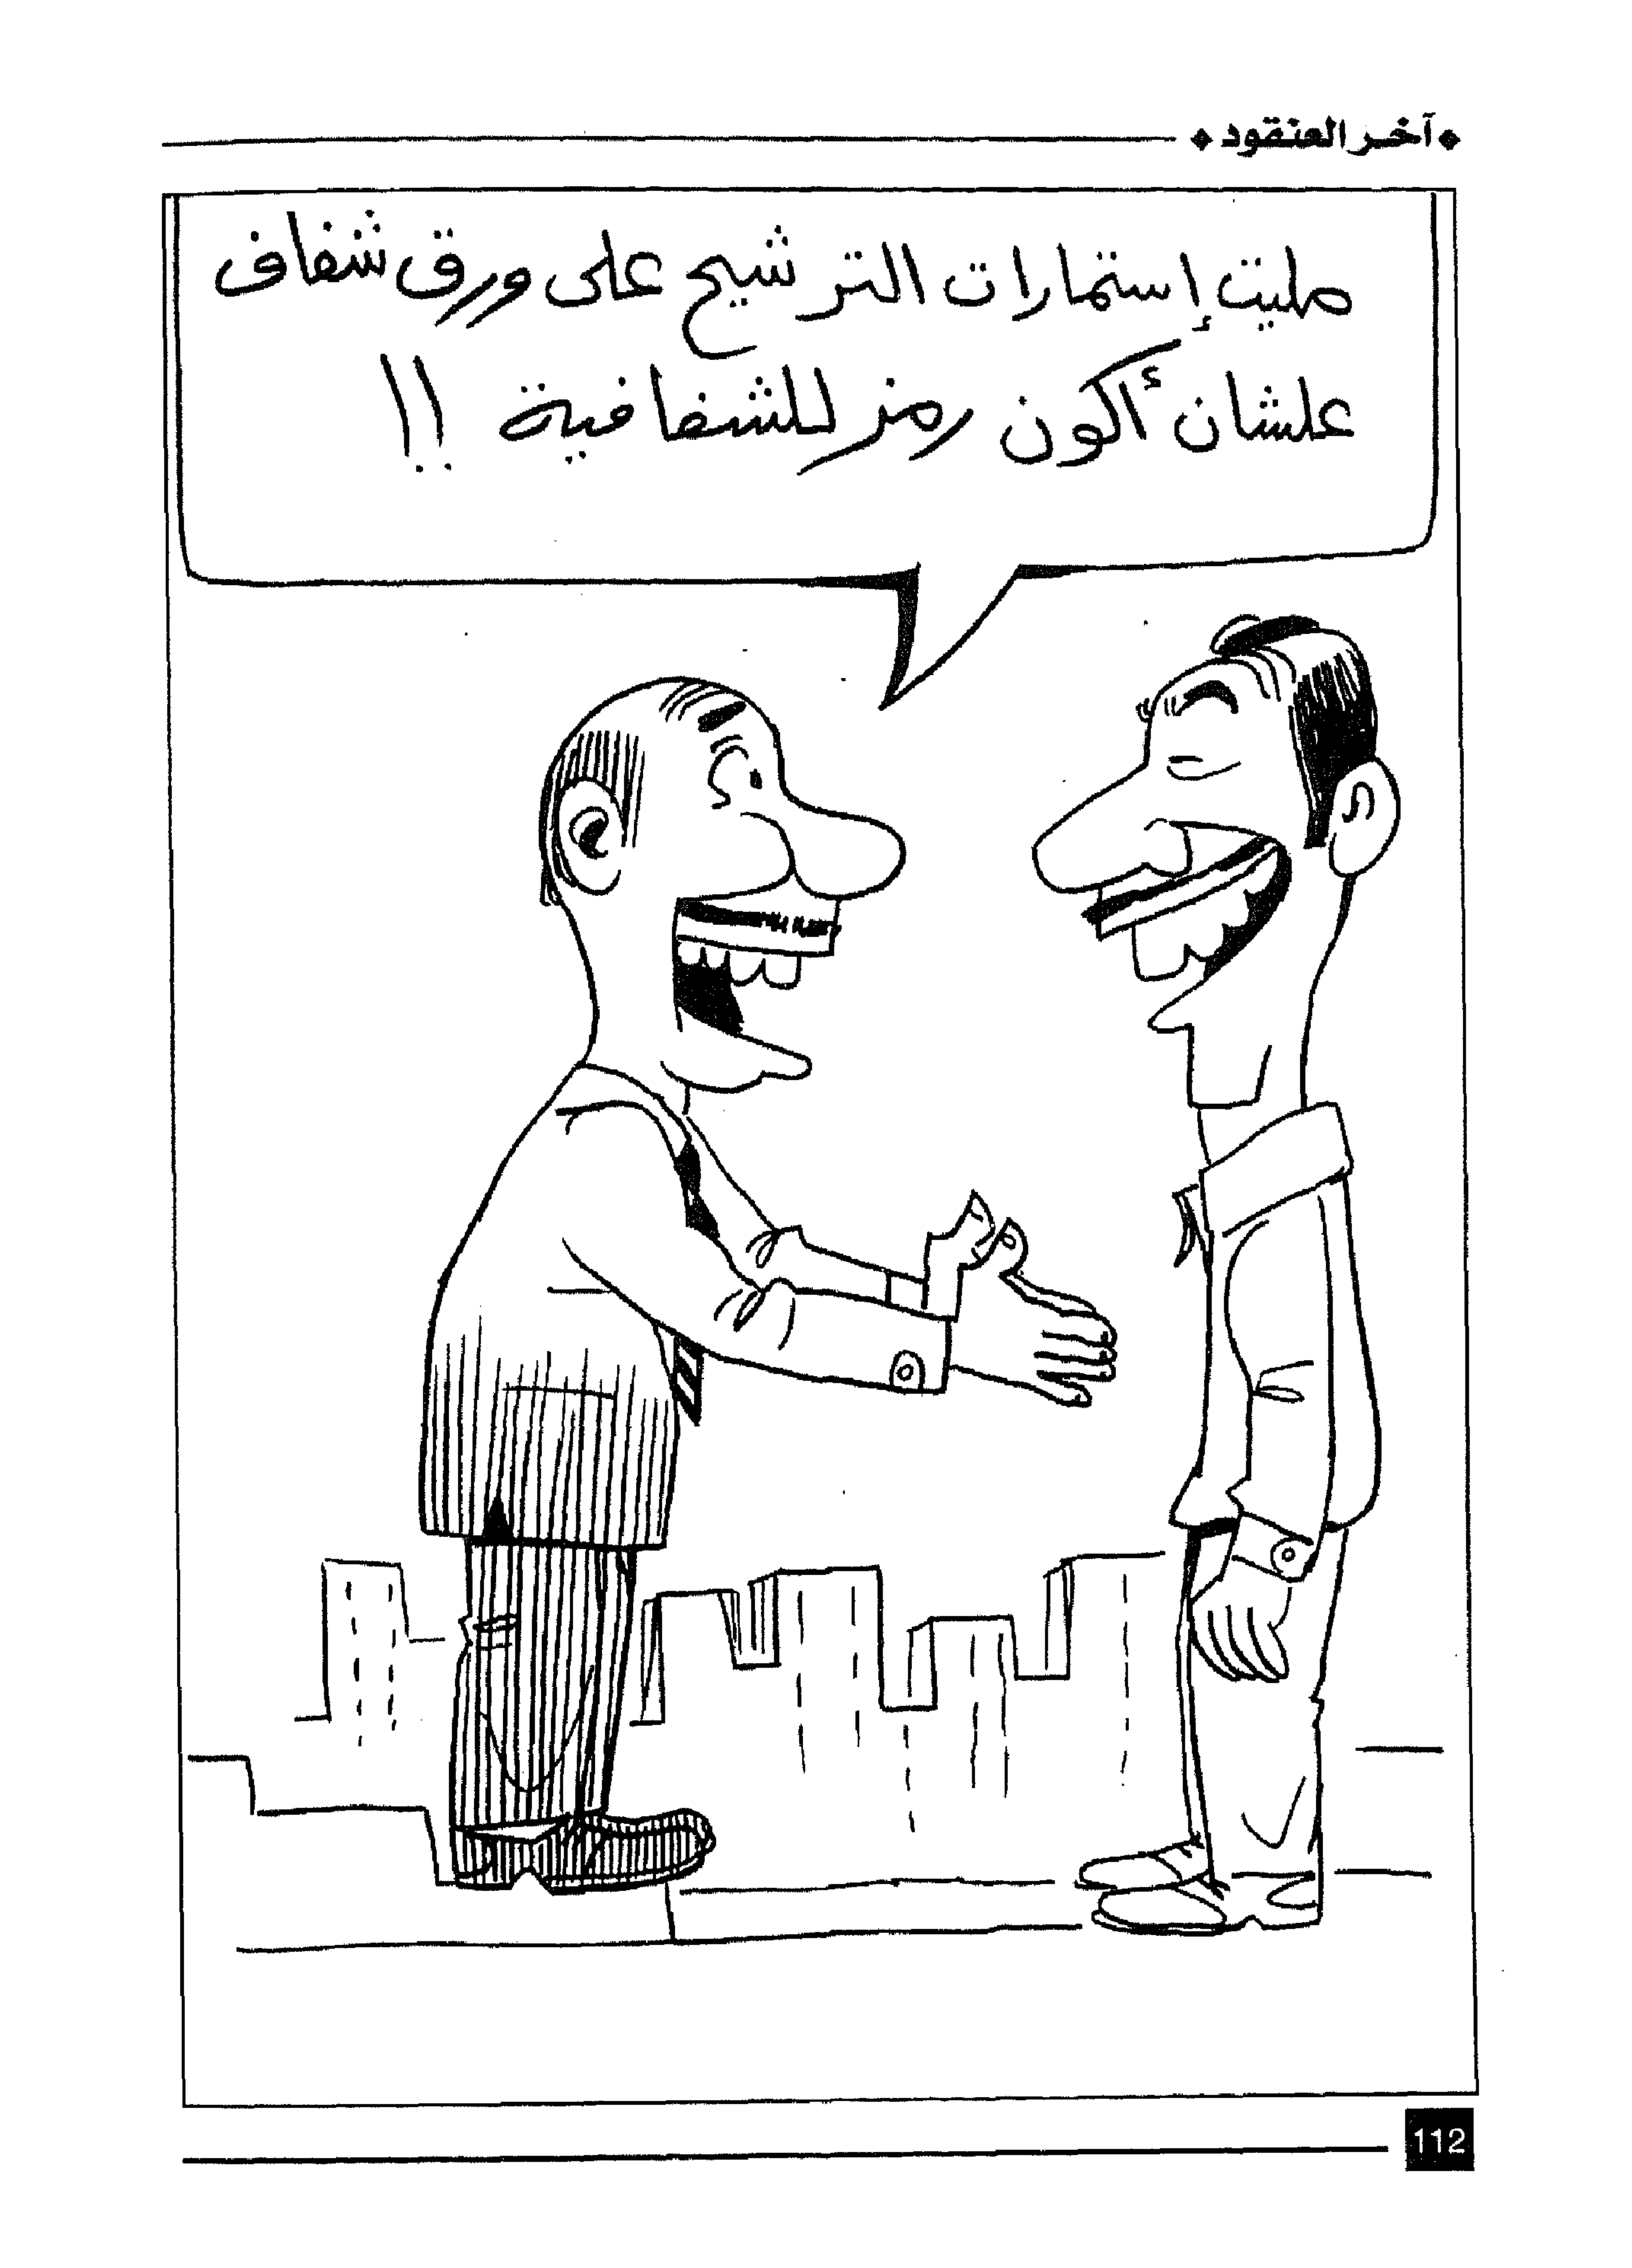 آخر العنقود
مليت إستمارات الترشيح على ورق شفاف
علشان أكون رمز للشفافية !!
112